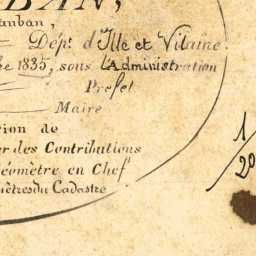 BAN,
auban,
Dépt. d'Ille et Vilaine.
1835, sous l'Administration
Préfet
Maire
ion de
r des Contributions
éomètre en Chef
mètres du Cadastre
1/20